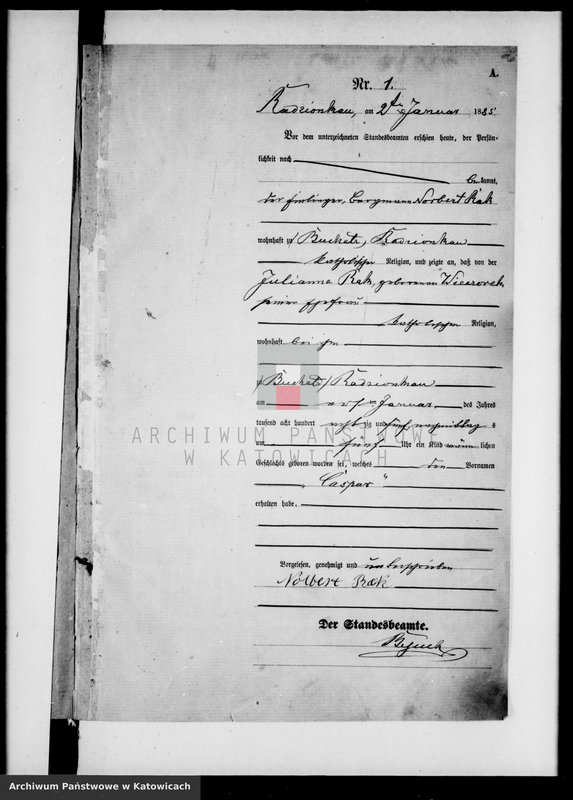 A.
Nr. 1.
Radzionkau, am 2ten Januar 1885
Vor dem unterzeichneten Standesbeamten erschien heute, der Persön-
lichkeit nach
bekannt,
der Bergmann Norbert Rak
wohnhaft zu Buchatz, Radzionkau
katholischer Religion, und zeigte an, daß von der
Julianna Rak, geborenen Wieczorek
seiner Ehefrau
katholischer Religion,
wohnhaft bei ihm
zu Buchatz, Radzionkau
am ersten Januar des Jahres
tausend acht hundert achtzig und fünf nachmittags
um fünf Uhr ein Kind männlichen
Geschlechts geboren worden sei, welches den Vornamen
„Caspar“
erhalten habe.
Vorgelesen, genehmigt und unterschrieben
Norbert Rak
Der Standesbeamte.
ARCHIWUM PAŃSTWOWE
W KATOWICACH
Archiwum Państwowe w Katowicach